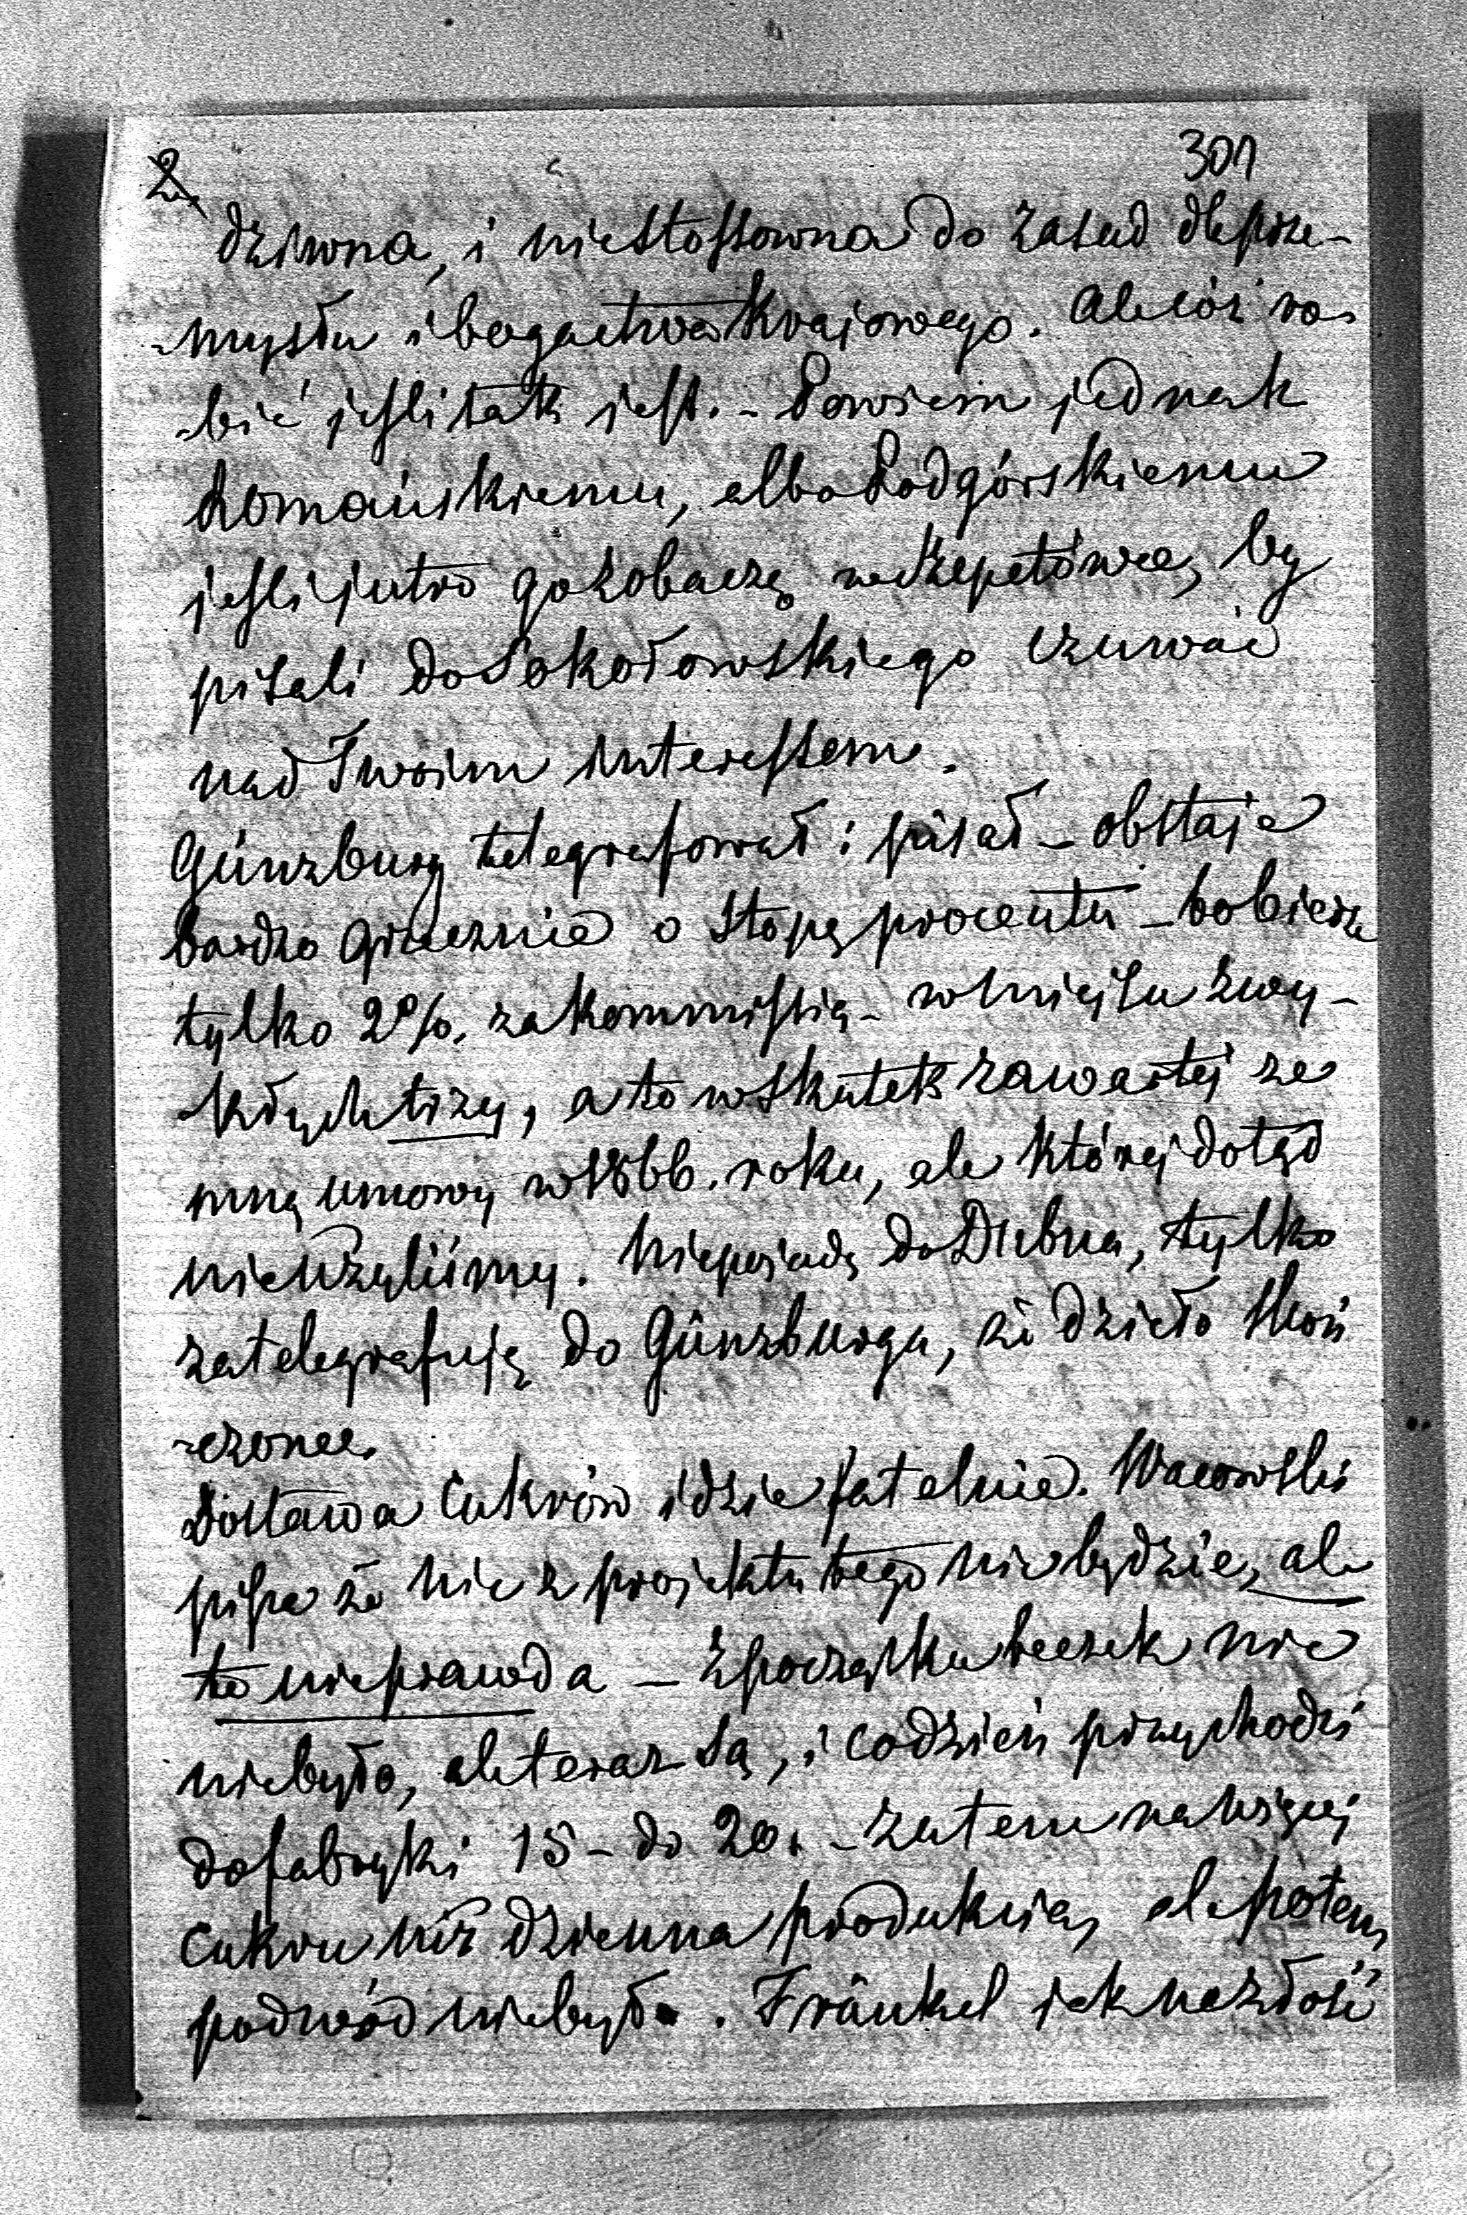 2.
301
dziwna, i niestossowna do zasad dla prze-
-mysłu i bogactwa Krajowego. Ale cóż ro-
-bić jeśli tak jest. - Powiem jednak
Romańskiemu, albo Podgórskiemu
jeśli jutro go zobaczę w Szepetówce, by
pisali do Sokołowskiego czuwać
nad Twoim interessem.
Günzburg telegrafował i pisał - obstaje
bardzo grzecznie o stopę procentu - bo bierze
tylko 2%. za kommissią - w miejscu zwy-
-kłych trzy, a to w skutek zawartej ze
mną umowy w 1866. roku, ale której dotąd
nieużyliśmy. Niepojadę do Dubna, tylko
zatelegrafuję do Günzburga, że dzieło skoń
-czone.
Dostawa Cukrów idzie fatalnie. Wacowski
pisze że nic z projektu tego nie będzie, ale
to nieprawda - z początku beczek nie
niebyło, ale teraz są, i codzień przychodzi
do fabryki 15 - do 20. - zatem na więcej
cukru niż dzienna produkcia, ale potem
podwód niebyło. Fränkel jak na złość